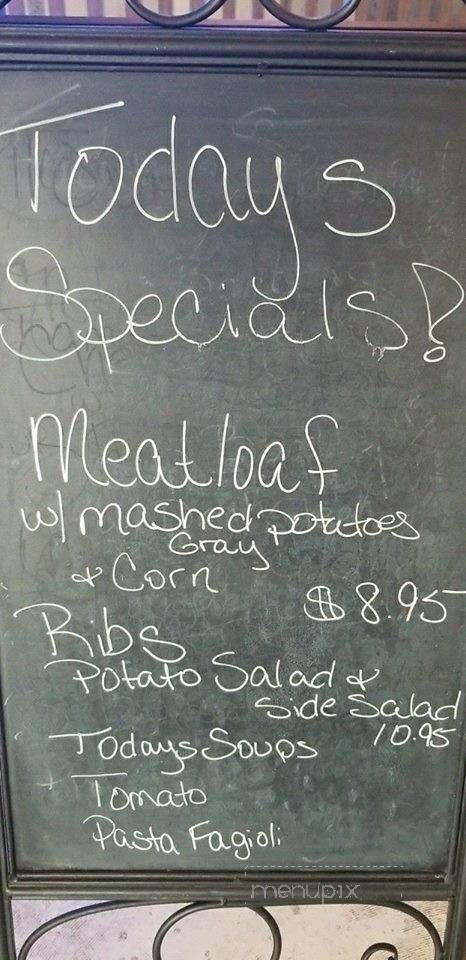 Todays
Specials!
Meatloaf
w/ mashed potatoes
Gray
& Corn
$8.95
Ribs
Potato Salad &
Side Salad
10.95
Todays Soups
Tomato
Pasta Fagioli
menupix